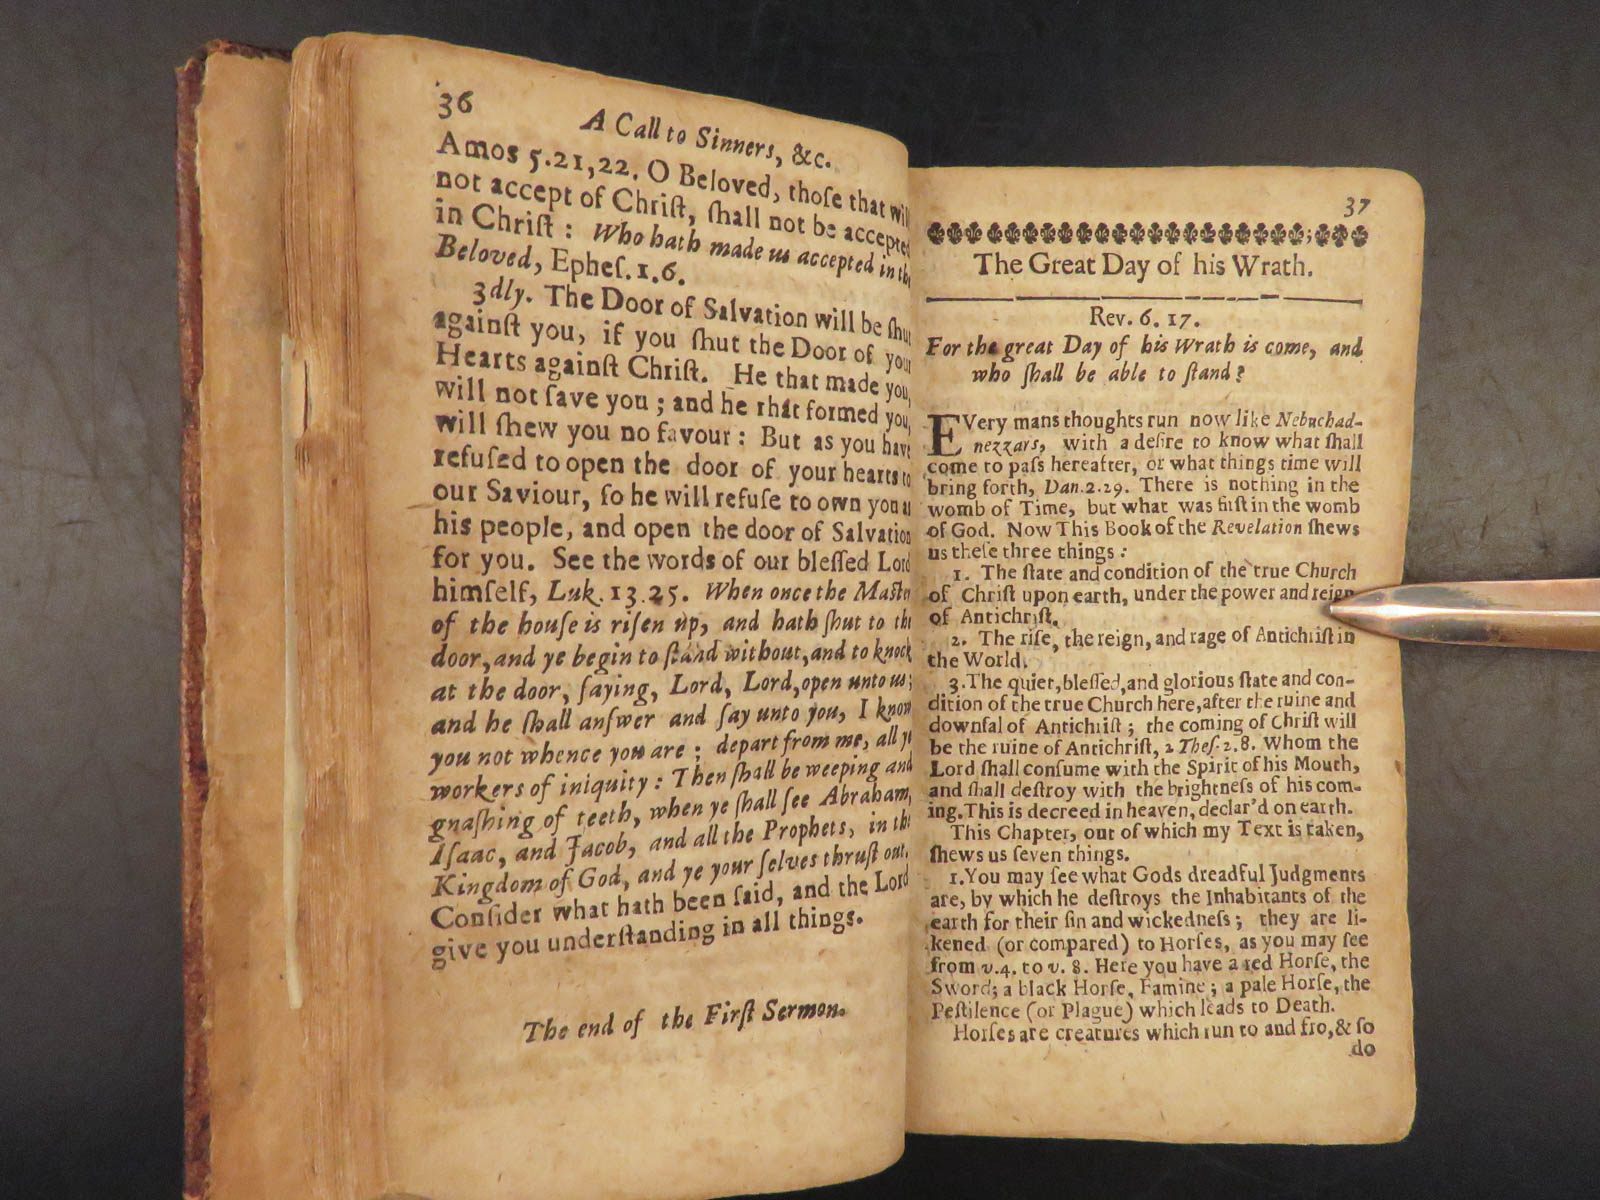 36
A Call to Sinners, &c.
Amos 5.21,22. O Beloved, thoſe that will
not accept of Chriſt, ſhall not be accepted
in Chriſt : Who hath made us accepted in the
Beloved, Epheſ. 1. 6.
3dly. The Door of Salvation will be ſhut
againſt you, if you ſhut the Door of your
Hearts againſt Chriſt. He that made you,
will not ſave you ; and he that formed you,
will ſhew you no favour : But as you have
refuſed to open the door of your hearts to
our Saviour, ſo he will refuſe to own you as
his people, and open the door of Salvation
for you. See the words of our bleſſed Lord
himſelf, Luk. 13. 25. When once the Maſter
of the houſe is riſen up, and hath ſhut to the
door, and ye begin to ſtand without, and to knock
at the door, ſaying, Lord, Lord, open unto us ;
and he ſhall anſwer and ſay unto you, I know
you not whence you are ; depart from me, all ye
workers of iniquity : Then ſhall be weeping and
gnaſhing of teeth, when ye ſhall ſee Abraham,
Iſaac, and Jacob, and all the Prophets, in the
Kingdom of God, and ye your ſelves thruſt out.
Conſider what hath been ſaid, and the Lord
give you underſtanding in all things.
The end of the Firſt Sermon.
37
The Great Day of his Wrath.
Rev. 6. 17.
For the great Day of his Wrath is come, and
who ſhall be able to ſtand ?
EVery mans thoughts run now like Nebuchad-
nezzars, with a deſire to know what ſhall
come to paſs hereafter, or what things time will
bring forth, Dan. 2. 29. There is nothing in the
womb of Time, but what was firſt in the womb
of God. Now This Book of the Revelation ſhews
us theſe three things :
1. The ſtate and condition of the true Church
of Chriſt upon earth, under the power and reign
of Antichriſt.
2. The riſe, the reign, and rage of Antichriſt in
the World.
3. The quiet, bleſſed, and glorious ſtate and con-
dition of the true Church here, after the ruine and
downfal of Antichriſt ; the coming of Chriſt will
be the ruine of Antichriſt, 2 Theſ. 2. 8. Whom the
Lord ſhall conſume with the Spirit of his Mouth,
and ſhall deſtroy with the brightneſs of his com-
ing. This is decreed in heaven, declar'd on earth.
This Chapter, out of which my Text is taken,
ſhews us ſeven things.
1. You may ſee what Gods dreadful Judgments
are, by which he deſtroys the Inhabitants of the
earth for their ſin and wickedneſs ; they are li-
kened (or compared) to Horſes, as you may ſee
from v. 4. to v. 8. Here you have a red Horſe, the
Sword ; a black Horſe, Famine ; a pale Horſe, the
Peſtilence (or Plague) which leads to Death.
Horſes are creatures which run to and fro, & ſo
do